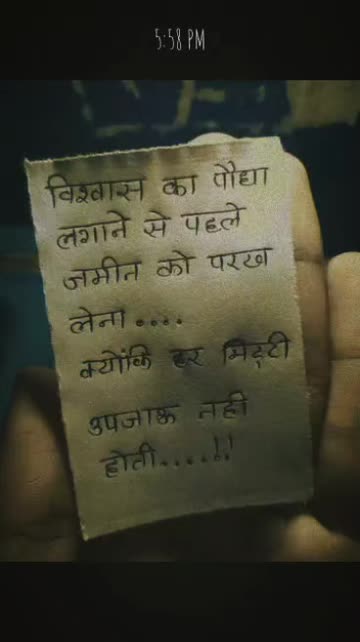 5:58 PM
विश्वास का पौधा
लगाने से पहले
जमीन को परख
लेना....
क्योंकि हर मिट्टी
उपजाऊ नही
होती.....!!